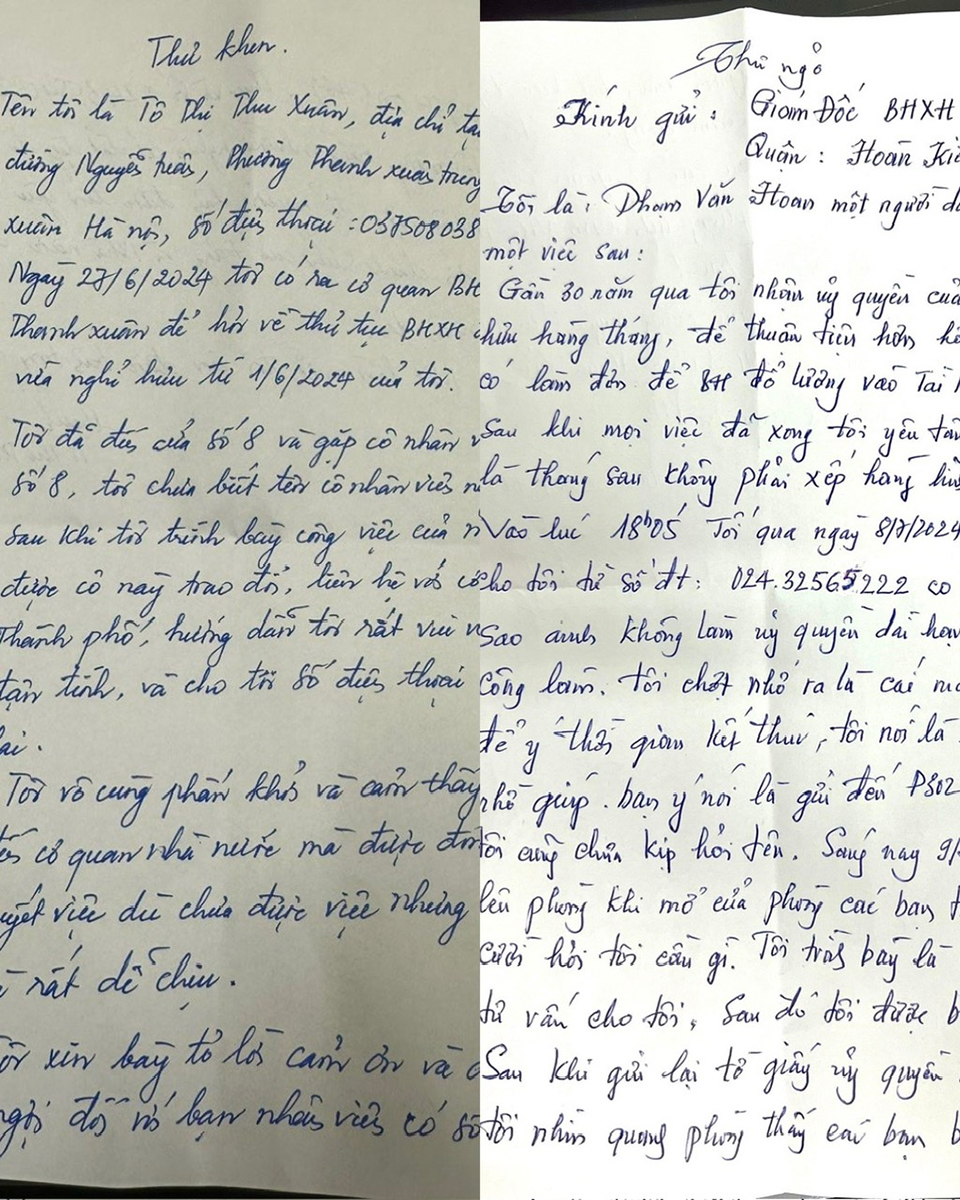 Thư khen.
Tên tôi là Tô Thị Thu Xuân, địa chỉ tại
đường Nguyễn Tuân, Phường Thanh xuân trung
xuân Hà nội, số điện thoại : 037508038
Ngày 27/6/2024 tôi có ra cơ quan BH
Thanh xuân để hỏi về thủ tục BHXH
vừa nghỉ hưu từ 1/6/2024 của tôi.
Tôi đã đến cửa số 8 và gặp cô nhân v
Số 8, tôi chưa biết tên cô nhân viên n
Sau khi tôi trình bày công việc của m
được cô này trao đổi, liên hệ với cơ
Thành phố, hướng dẫn tôi rất vui v
tận tình, và cho tôi số điện thoại
lại.
Tôi vô cùng phấn khởi và cảm thấy
đến cơ quan nhà nước mà được đón
quyết việc dù chưa được việc nhưng
rất dễ chịu.
Tôi xin bày tỏ lời cảm ơn và
ngợi đối với bạn nhân viên có số
Thư ngỏ
Kính gửi : Giám Đốc BHXH
Quận : Hoàn Kiế
Tôi là : Phạm Văn Hoan một người d
một việc sau :
Gần 30 năm qua tôi nhận uỷ quyền của
hưu hàng tháng, để thuận tiện hơn
có làm đơn để BH đổ lương vào Tài
Sau khi mọi việc đã xong tôi yên tâm
là tháng sau không phải xếp hàng
Vào lúc 18h05 Tối qua ngày 8/7/2024
cho tôi từ số đt : 024.32565222 co
Sao anh không làm uỷ quyền dài hạn
công làm. Tôi chợt nhớ ra là cái
để ý thời gian kết thúc, tôi nói là
nhờ giúp. bạn ý nói là gửi đến P302
tôi cũng chưa kịp hỏi tên. Sáng nay 9/
lên phòng khi mở cửa phòng các bạn
cười hỏi tôi cần gì. Tôi trình bày là
tư vấn cho tôi, Sau đó tôi được b
Sau khi gửi lại tờ giấy uỷ quyền
tôi nhìn quang phòng thấy các bạn b